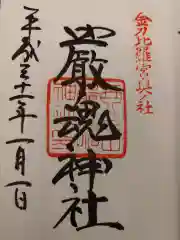 金刀比羅宮奥社
厳魂神社
平成三十一年一月一日